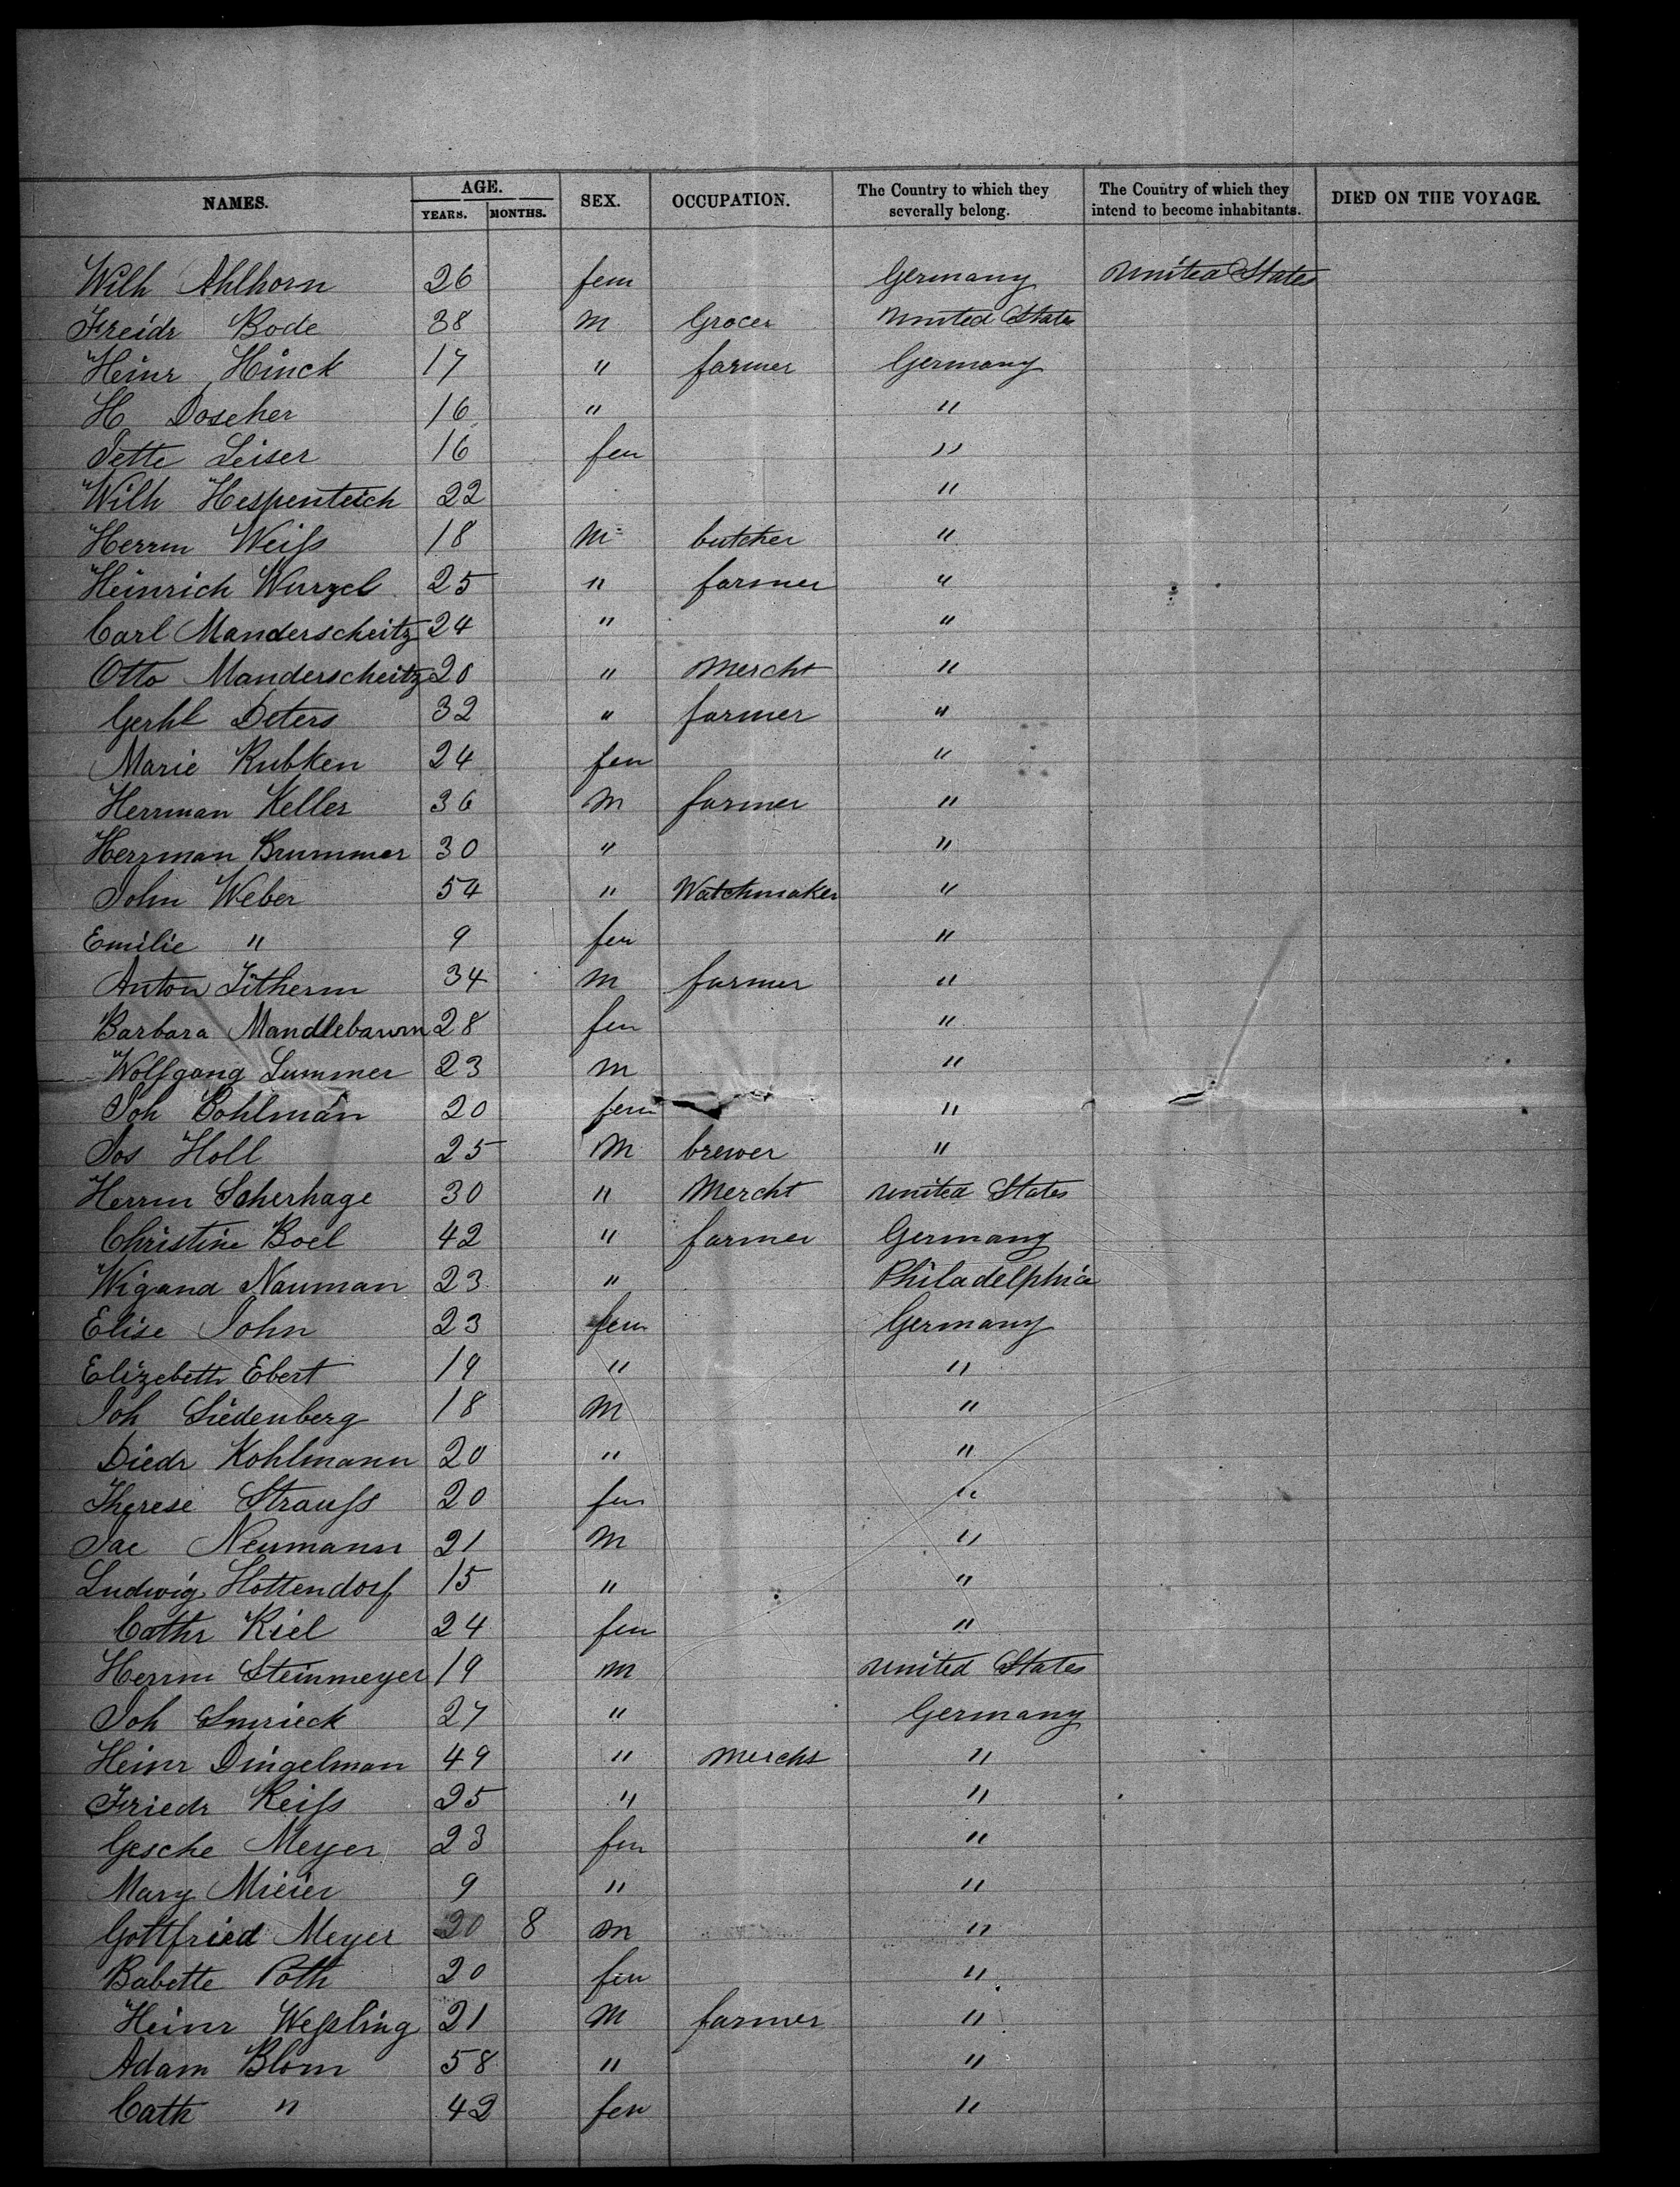 NAMES. AGE. YEARS. MONTHS. SEX. OCCUPATION. The Country to which they severally belong. The Country of which they intend to become inhabitants. DIED ON THE VOYAGE.
Wilh Ahlhorn 26 fem Germany United States
Freidr Bode 38 M Grocer United States
Heinr Hinck 17 " farmer Germany
H Doscher 16 " "
Jette Leiser 16 fem "
Wilh Hespenteich 22 "
Herrm Weiſs 18 M butcher "
Heinrich Wurzel 25 " farmer "
Carl Manderscheitz 24 " "
Otto Manderscheitz 20 " Mercht "
Gerhl Deters 32 " farmer "
Marie Rubken 24 fem "
Herrman Keller 36 M farmer "
Herrman Brummer 30 " "
John Weber 54 " Watchmaker "
Emilie " 9 fem "
Anton Titherm 34 M farmer "
Barbara Mandlebaum 28 fem "
Wolfgang Lummer 23 M "
Joh Bohlman 20 fem "
Jos Holl 25 M brewer "
Herrm Scherhage 30 " Mercht United States
Christine Boel 42 " farmer Germany
Wigand Nauman 23 " Philadelphia
Elise John 23 fem Germany
Elizebeth Ebert 19 " "
Joh Siedenberg 18 M "
Diedr Kohlmann 20 " "
Therese Strauſs 20 fem "
Jac Neumann 21 M "
Ludwig Hottendorf 15 " "
Cathr Kiel 24 fem "
Herrm Steinmeyer 19 M United States
Joh 27 " Germany
Heinr Dingelman 49 " Mercht "
Friedr Reiſs 25 " "
Gesche Meyer 23 fem "
Mary Mieier 9 " "
Gottfried Meyer 20 8 M "
Babette Poth 20 fem "
Heinr Weſsling 21 M farmer "
Adam Blom 58 " "
Cath " 42 fem "